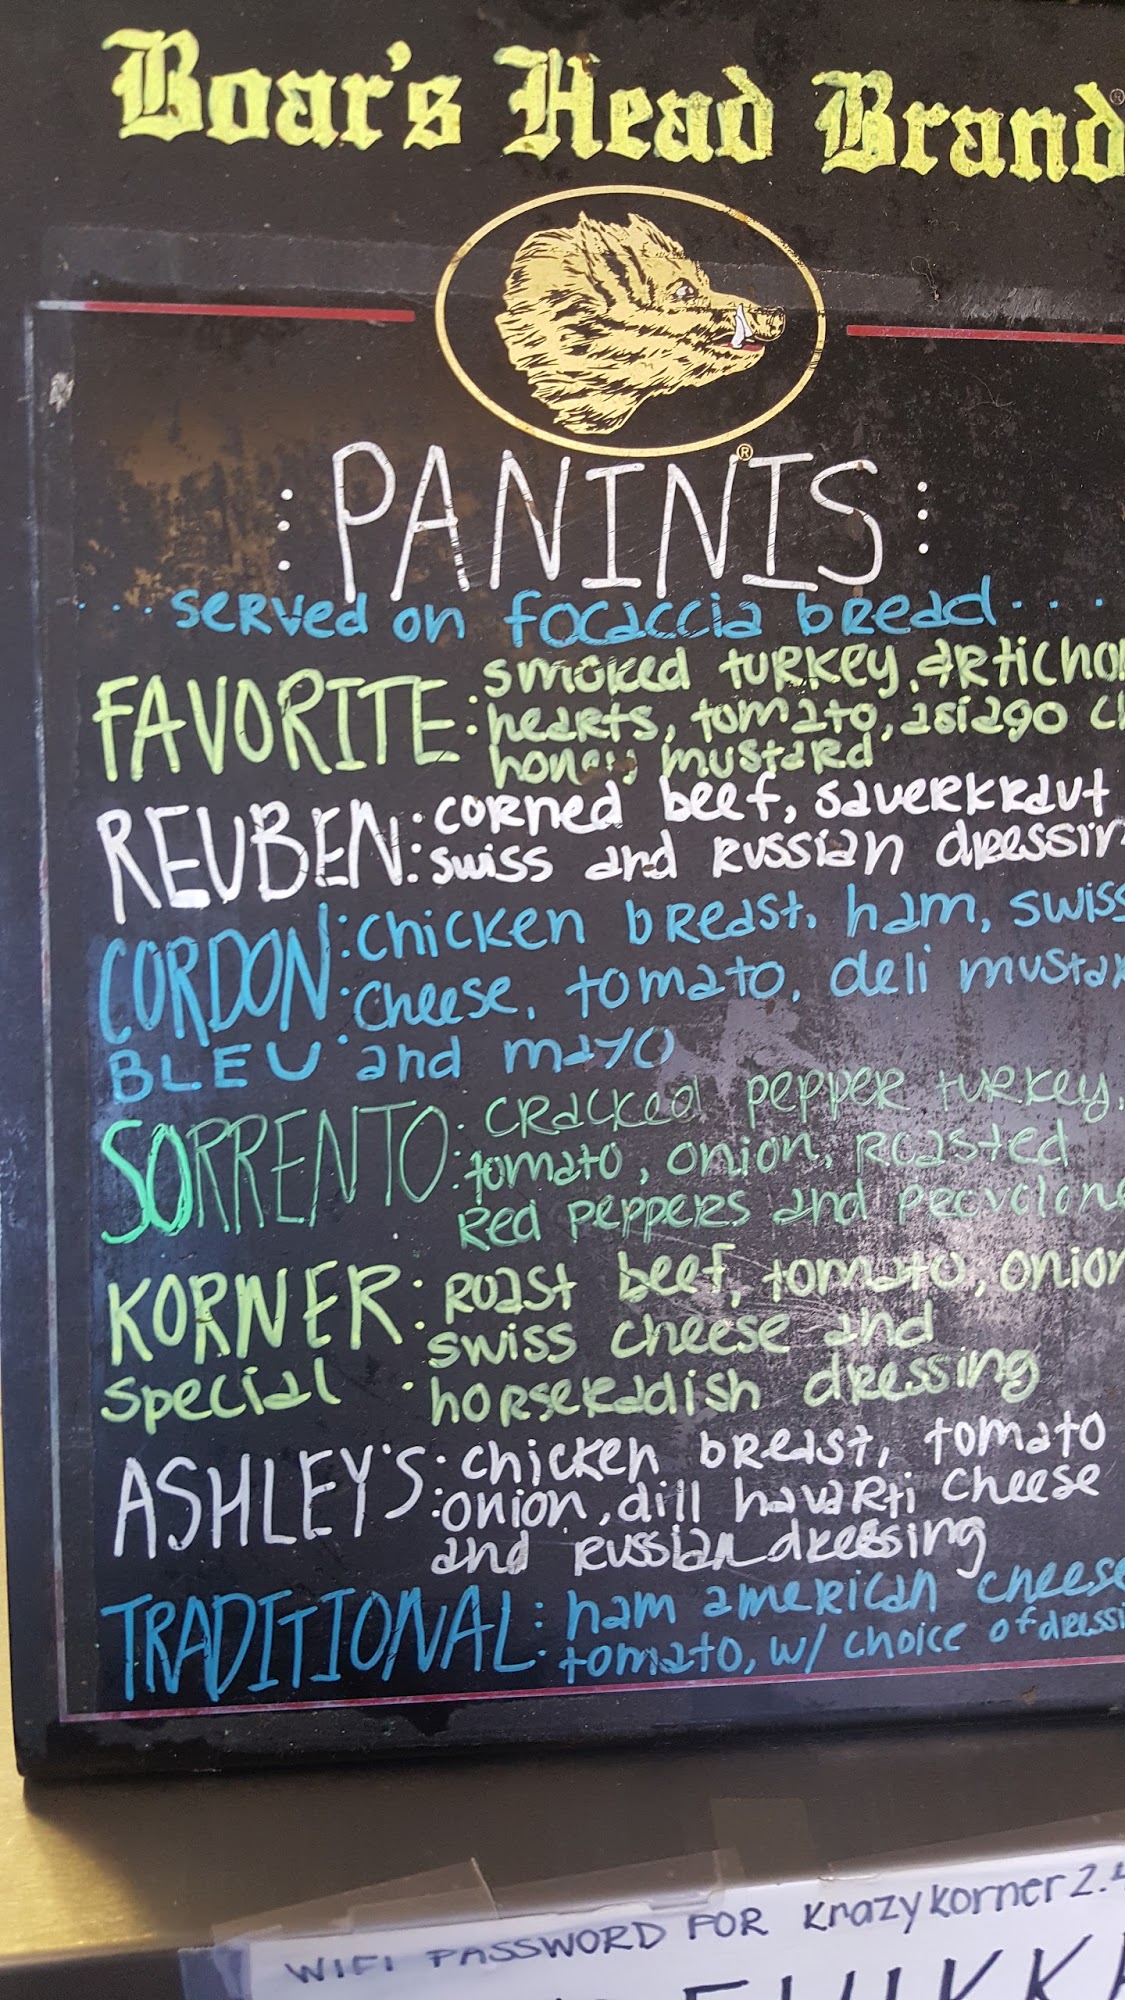 Boar's Head Brand®
®
: PANINIS :
... served on focaccia bread ....
FAVORITE: smoked turkey, artichok
hearts, tomato, asiago ch
honey mustard
REUBEN: corned beef, sauerkraut
swiss and russian dressin
CORDON: chicken breast, ham, swiss
cheese, tomato, deli mustar
BLEU and mayo
SORRENTO: cracked pepper turkey,
tomato, onion, roasted
red peppers and provolone
KORNER: roast beef, tomato, onion
swiss cheese and
special horseradish dressing
ASHLEY'S: chicken breast, tomato
onion, dill havarti cheese
and russian dressing
TRADITIONAL: ham american cheese
tomato, w/ choice of dressi
WIFI PASSWORD FOR Krazykorner2.4